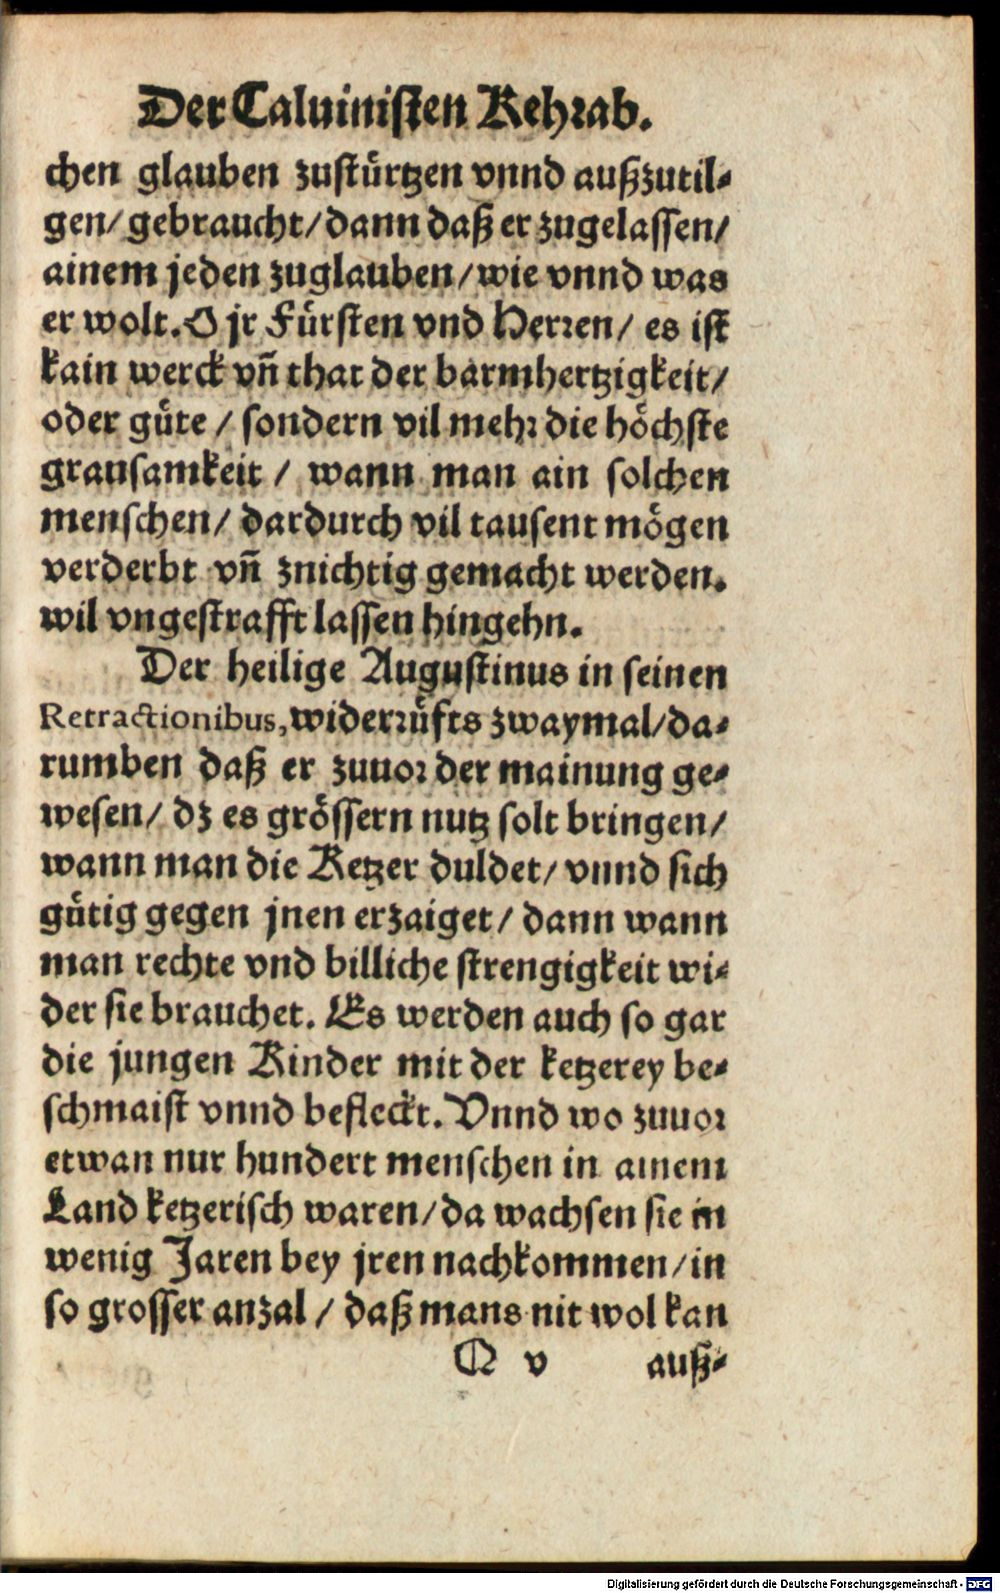 Der Caluinisten Kehrab.
chen glauben zustürtzen vnnd außzutil-
gen/ gebraucht/ dann daß er zugelassen/
ainem jeden zuglauben/ wie vnnd was
er wolt. O jr Fürsten vnd Herren/ es ist
kain werck vñ that der barmhertzigkeit/
oder güte / sondern vil mehr die höchste
grausamkeit / wann man ain solchen
menschen/ dardurch vil tausent mögen
verderbt vñ znichtig gemacht werden.
wil vngestrafft lassen hingehn.
Der heilige Augustinus in seinen
Retractionibus, widerrüfts zwaymal/ da-
rumben daß er zuuor der mainung ge-
wesen/ dz es grössern nutz solt bringen/
wann man die Ketzer duldet/ vnnd sich
gütig gegen jnen erzaiget/ dann wann
man rechte vnd billiche strengigkeit wi-
der sie brauchet. Es werden auch so gar
die jungen Kinder mit der ketzerey be-
schmaist vnnd befleckt. Vnnd wo zuuor
etwan nur hundert menschen in ainem
Land ketzerisch waren/ da wachsen sie in
wenig Jaren bey jren nachkommen/ in
so grosser anzal / daß mans nit wol kan
Q v auß-
Digitalisierung gefördert durch die Deutsche Forschungsgemeinschaft - DFG